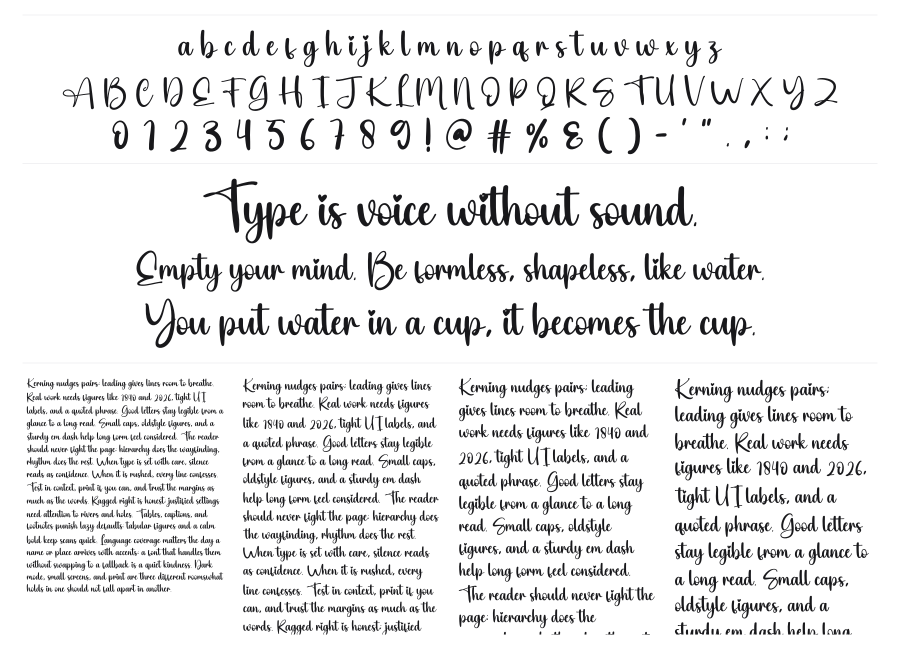 a b c d e f g h i j k l m n o p q r s t u v w x y z
A B C D E F G H I J K L M N O P Q R S T U V W X Y Z
0 1 2 3 4 5 6 7 8 9 ! @ # % & ( ) - ' " . , : ;
Type is voice without sound.
Empty your mind. Be formless, shapeless, like water.
You put water in a cup, it becomes the cup.
Kerning nudges pairs; leading gives lines room to breathe.
Real work needs figures like 1840 and 2026, tight UI
labels, and a quoted phrase. Good letters stay legible from a
glance to a long read. Small caps, oldstyle figures, and a
sturdy em dash help long form feel considered. The reader
should never fight the page: hierarchy does the wayfinding,
rhythm does the rest. When type is set with care, silence
reads as confidence. When it is rushed, every line confesses.
Test in context, print if you can, and trust the margins as
much as the words. Ragged right is honest; justified settings
need attention to rivers and holes. Tables, captions, and
footnotes punish lazy defaults; tabular figures and a calm
bold keep scans quick. Language coverage matters the day a
name or place arrives with accents; a font that handles them
without swapping to a fallback is a quiet kindness. Dark
mode, small screens, and print are three different rooms; what
holds in one should not fall apart in another.
Kerning nudges pairs; leading gives lines
room to breathe. Real work needs figures
like 1840 and 2026, tight UI labels, and
a quoted phrase. Good letters stay legible
from a glance to a long read. Small caps,
oldstyle figures, and a sturdy em dash
help long form feel considered. The reader
should never fight the page: hierarchy does
the wayfinding, rhythm does the rest.
When type is set with care, silence reads
as confidence. When it is rushed, every
line confesses. Test in context, print if you
can, and trust the margins as much as the
words. Ragged right is honest; justified
Kerning nudges pairs; leading
gives lines room to breathe. Real
work needs figures like 1840 and
2026, tight UI labels, and a
quoted phrase. Good letters stay
legible from a glance to a long
read. Small caps, oldstyle
figures, and a sturdy em dash
help long form feel considered.
The reader should never fight the
page: hierarchy does the
Kerning nudges pairs;
leading gives lines room to
breathe. Real work needs
figures like 1840 and 2026,
tight UI labels, and a
quoted phrase. Good letters
stay legible from a glance to
a long read. Small caps,
oldstyle figures, and a
sturdy em dash help long